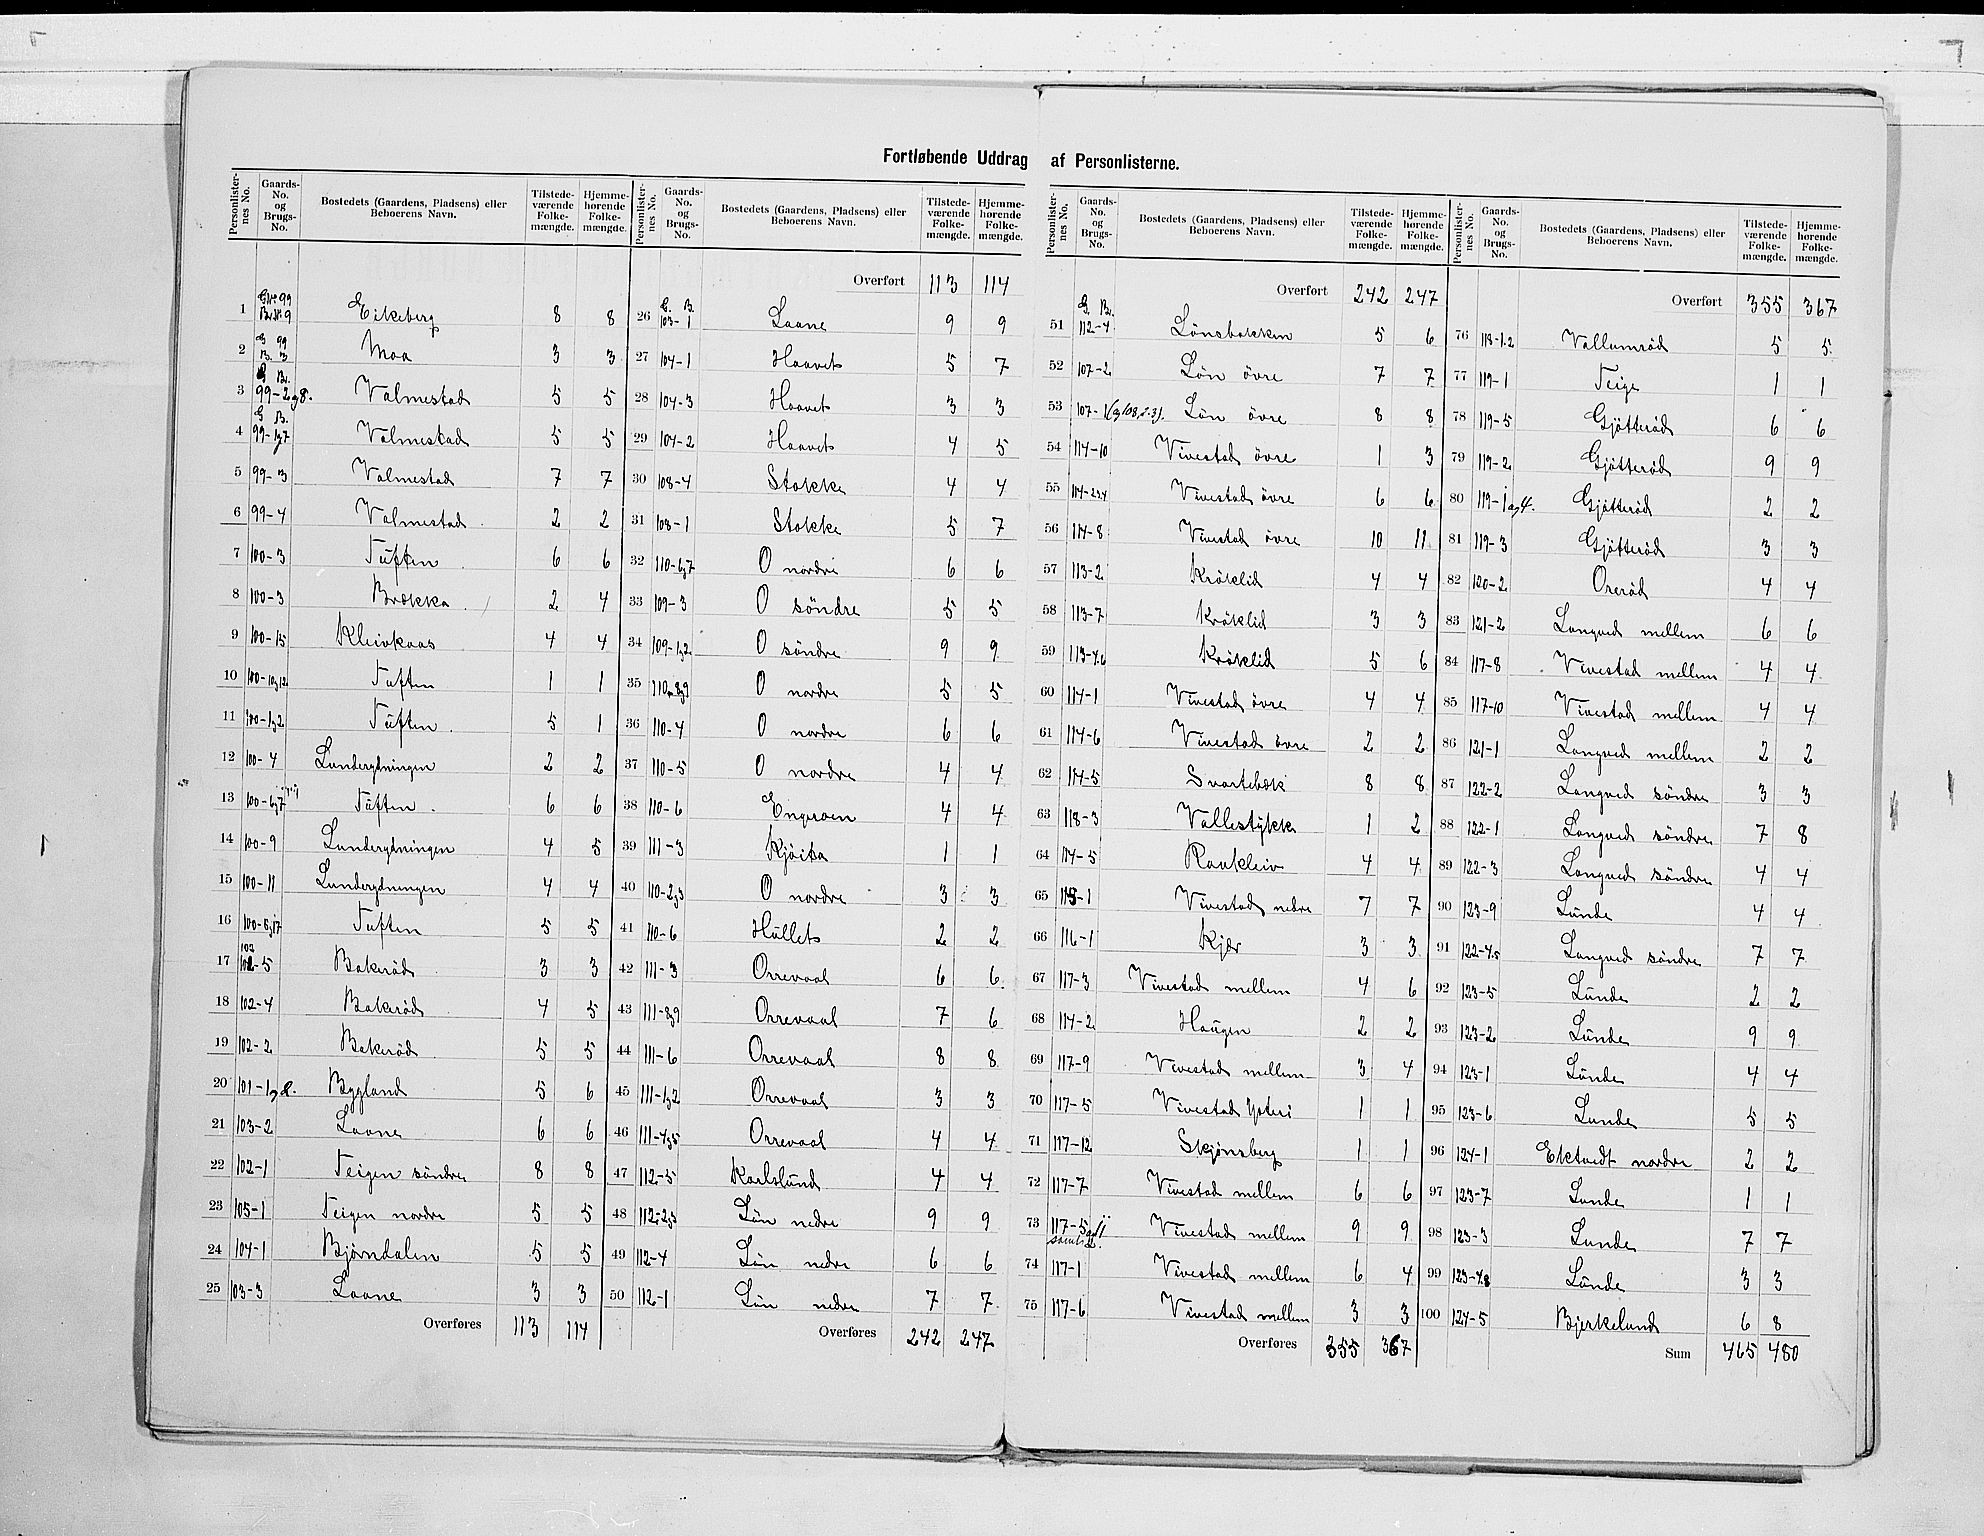 Fortløbende Uddrag af Personlisterne.
Personlisternes No. Gaards-No. og Brugs-No. Bostedets (Gaardens, Pladsens) eller Beboerens Navn. Tilstedeværende Folkemængde. Hjemmehørende Folkemængde.
1 G.No. 99 Br.No. 9 Eikeberg 8 8
2 G 99 B. 3 Moa 3 3
3 G Br. 99-2og8. Valmestad 5 5
4 G B. 99-1og7 Valmestad 5 5
5 99-3 Valmestad 7 7
6 99-4 Valmestad 2 2
7 100-3 Tuften 6 6
8 100-3 Brekka 2 4
9 100-15 Kleivkaas 4 4
10 100-10og12 Tuften 1 1
11 100-1og2 Tuften 5 1
12 100-4 Lunderydningen 2 2
13 100-6og7 Tuften 6 6
14 100-9 Lunderydningen 4 5
15 100-11 Lunderydningen 4 4
16 100-5og17 Tuften 5 5
17 102-5 Bakerød 3 3
18 102-4 Bakerød 4 5
19 102-2 Bakerød 5 5
20 101-1og2. Bygland 5 6
21 103-2 Laane 6 6
22 102-1 Teigen söndre 8 8
23 105-1 Teigen nordre 5 5
24 104-1 Bjørndalen 5 5
25 103-3 Laane 3 3
Overføres 113 114
Personlisternes No. Gaards-No. og Brugs-No. Bostedets (Gaardens, Pladsens) eller Beboerens Navn. Tilstedeværende Folkemængde. Hjemmehørende Folkemængde.
Overført 113 114
26 G. B. 103-1 Laane 9 9
27 104-1 Haavet 5 7
28 104-3 Haavet 3 3
29 104-2 Haavet 4 5
30 108-4 Stokke 4 4
31 108-1 Stokke 5 7
32 110-6og7 O nordre 6 6
33 109-3 O söndre 5 5
34 109-1og2 O söndre 9 9
35 110-8og9 O nordre 5 5
36 110-4 O nordre 6 6
37 110-5 O nordre 4 4
38 110-6 Engeroen 4 4
39 111-3 Kjöita 1 1
40 110-2og3 O nordre 3 3
41 110-6 Hullet 2 2
42 111-3 Orrevaal 6 6
43 111-8og9 Orrevaal 7 6
44 111-6 Orrevaal 8 8
45 111-1og2 Orrevaal 3 3
46 111-4og5 Orrevaal 4 4
47 112-5 Karlslund 4 4
48 112-2og3 Lön nedre 9 9
49 112-4 Lön nedre 6 6
50 112-1 Lön nedre 7 7
Overføres 242 247
Personlisternes No. Gaards-No. og Brugs-No. Bostedets (Gaardens, Pladsens) eller Beboerens Navn. Tilstedeværende Folkemængde. Hjemmehørende Folkemængde.
Overført 242 247
51 G. Br. 112-4 Lönsbakken 5 6
52 107-2 Lön övre 7 7
53 107-1(og108,2.3). Lön övre 8 8
54 114-10 Vivestad övre 1 3
55 114-2og4 Vivestad övre 6 6
56 114-8 Vivestad övre 10 11
57 113-2 Kröklid 4 4
58 113-7 Kröklid 3 3
59 113-4.6 Kröklid 5 6
60 114-1 Vivestad övre 4 4
61 114-6 Vivestad övre 2 2
62 114-5 Svartebæk 8 8
63 118-3 Vallestykke 1 2
64 114-5 Raukleiv 4 4
65 115-1 Vivestad nedre 7 7
66 116-1 Kjær 3 3
67 117-3 Vivestad mellem 4 6
68 114-2 Haugen 2 2
69 117-9 Vivestad mellem 3 4
70 117-5 Vivestad Ystri 1 1
71 117-12 Skjönsberg 1 1
72 117-7 Vivestad mellem 6 6
73 117-5og11 samt 2. Vivestad mellem 9 9
74 117-1 Vivestad mellem 6 4
75 117-6 Vivestad mellem 3 3
Overføres 355 367
Personlisternes No. Gaards-No. og Brugs-No. Bostedets (Gaardens, Pladsens) eller Beboerens Navn. Tilstedeværende Folkemængde. Hjemmehørende Folkemængde.
Overført 355 367
76 118-1.2 Vallumröd 5 5
77 119-1 Teige 1 1
78 119-5 Gjötteröd 6 6
79 119-2 Gjötteröd 9 9
80 119-1og4. Gjötteröd 2 2
81 119-3 Gjötteröd 3 3
82 120-2 Oreröd 4 4
83 121-2 Langved mellem 6 6
84 117-8 Vivestad mellem 4 4
85 117-10 Vivestad mellem 4 4
86 121-1 Langved mellem 2 2
87 122-2 Langved söndre 3 3
88 122-1 Langved söndre 7 8
89 122-3 Langved söndre 4 4
90 123-9 Lunde 4 4
91 122-4.5 Langved söndre 7 7
92 123-5 Lunde 2 2
93 123-2 Lunde 9 9
94 123-1 Lunde 4 4
95 123-6 Lunde 5 5
96 124-1 Ektvedt nordre 2 2
97 123-7 Lunde 1 1
98 123-3 Lunde 7 7
99 123-4.8 Lunde 3 3
100 124-5 Bjerkelund 6 8
Sum 465 480